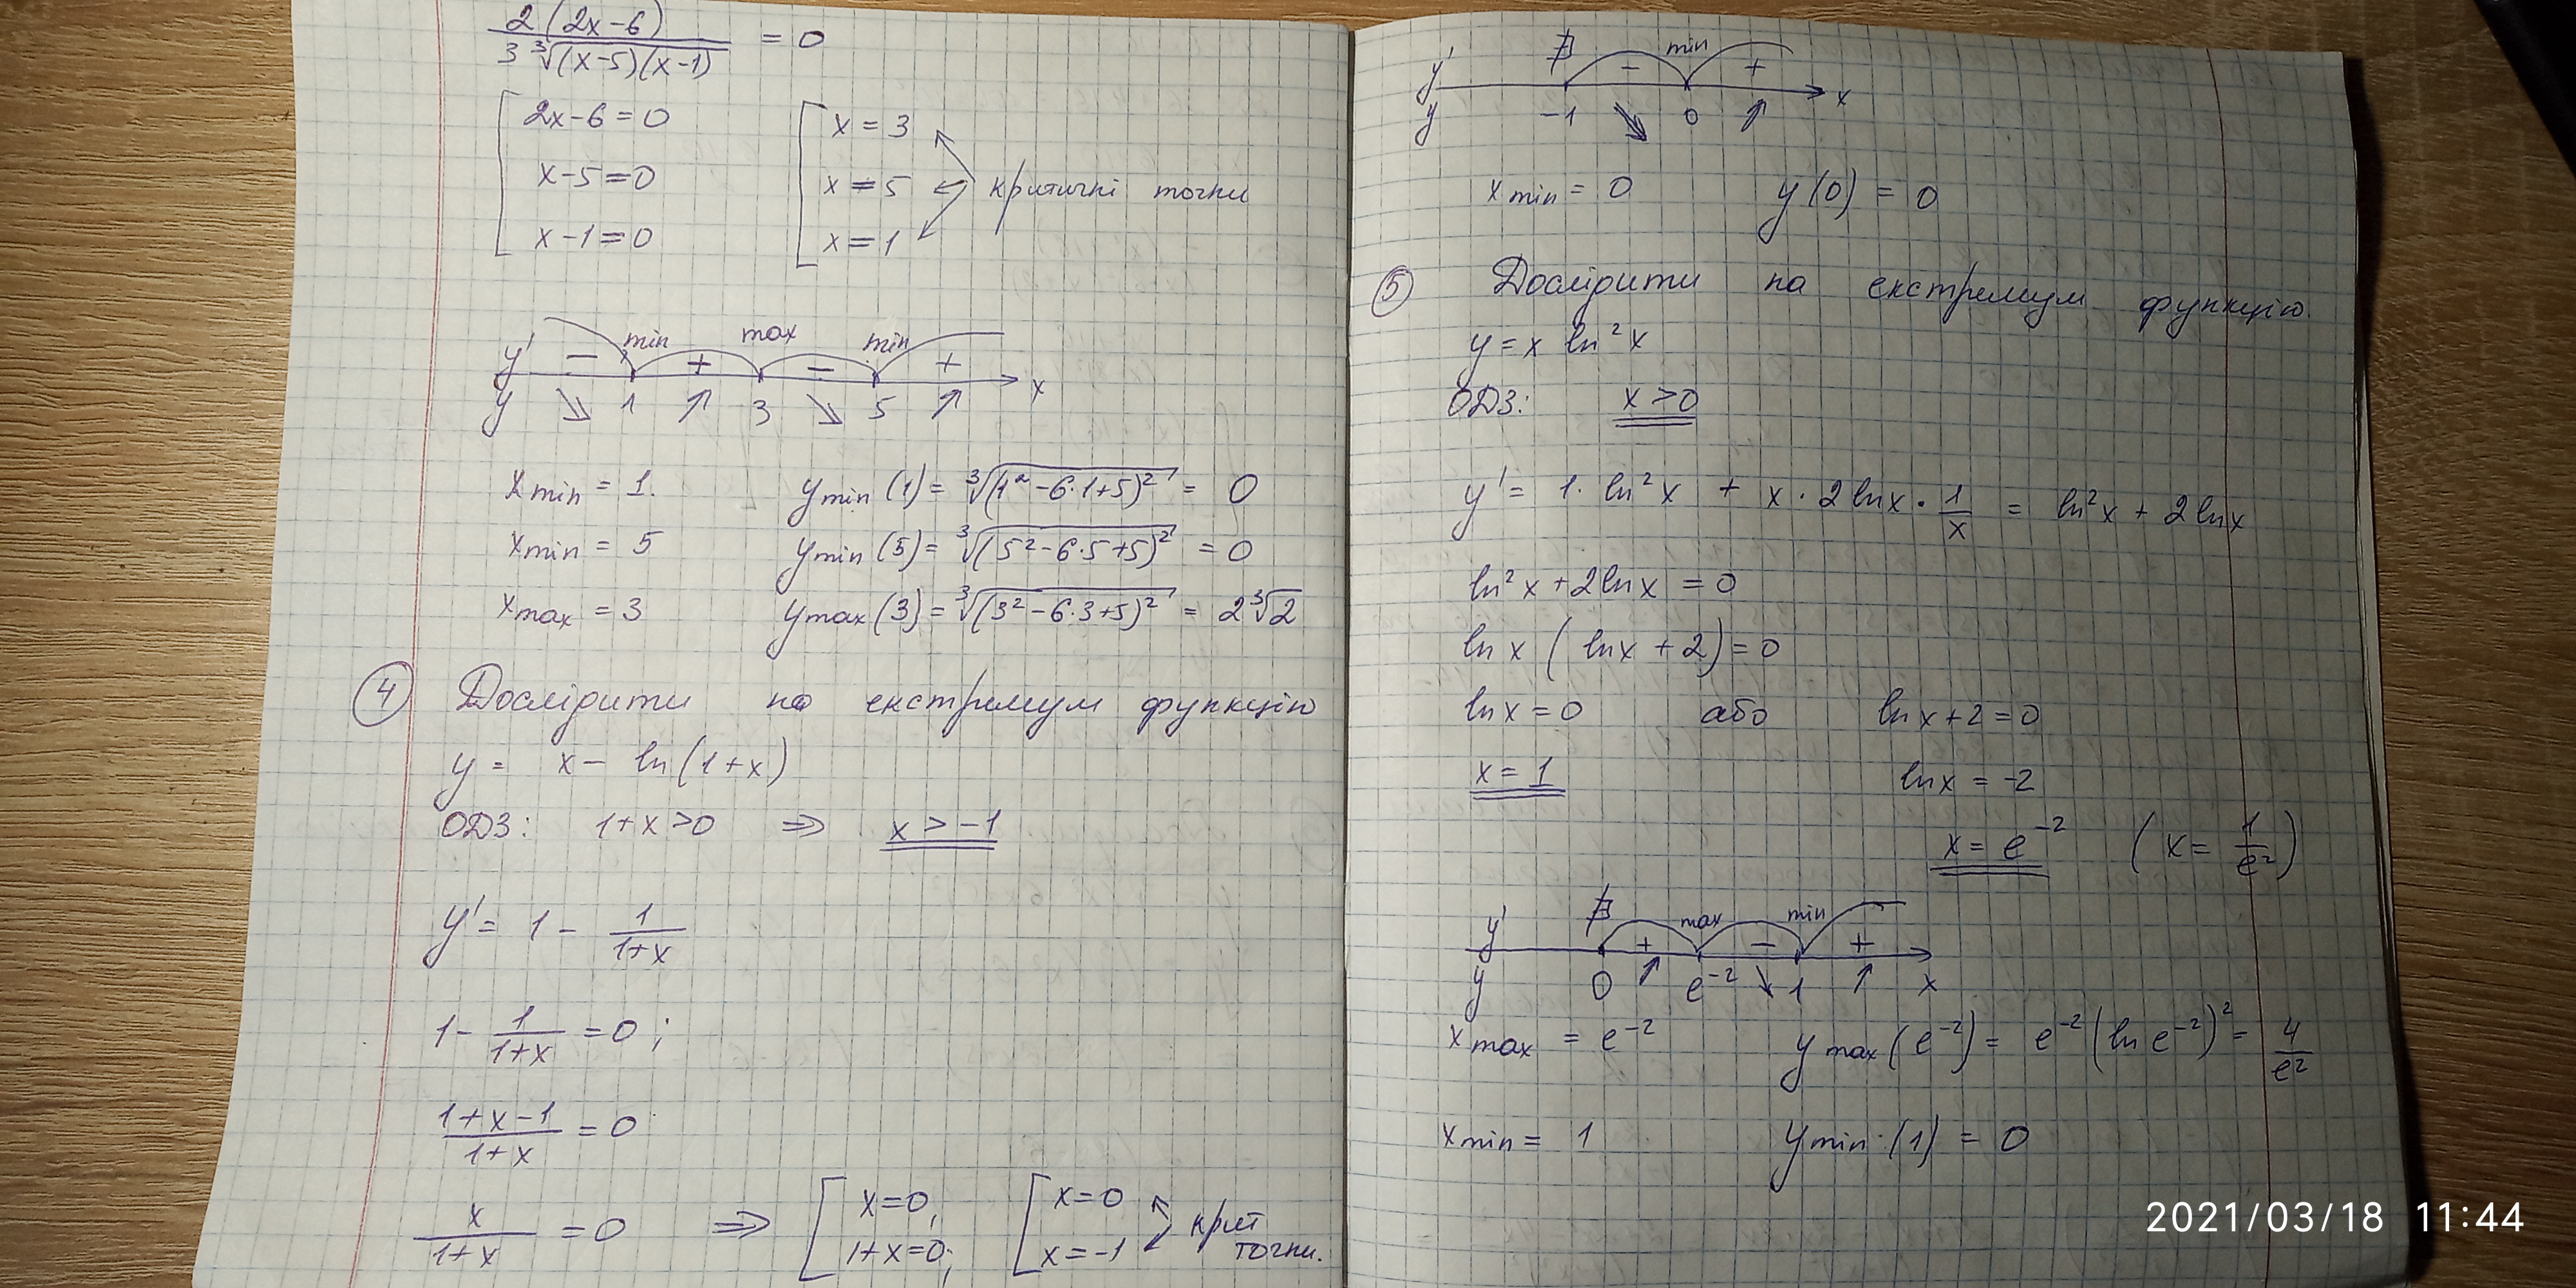 2(2x-6) / 3∛((x-5)(x-1)) = 0
2x-6=0
x-5=0
x-1=0
x=3
x=5
x=1
критичні точки
y' − min + max − min + x
y ↘ 1 ↗ 3 ↘ 5 ↗
x min = 1. y min (1) = ∛((1²-6·1+5)²) = 0
x min = 5 y min (5) = ∛((5²-6·5+5)²) = 0
x max = 3 y max (3) = ∛((3²-6·3+5)²) = 2∛2
④ Дослідити на екстремум функцію
y = x − ln(1+x)
ОДЗ: 1+x>0 ⇒ x > -1
y' = 1 − 1/(1+x)
1 − 1/(1+x) = 0;
(1+x-1)/(1+x) = 0
x/(1+x) = 0 ⇒ [ x=0, 1+x=0; [ x=0 x=-1 крит точки.
y' ∄ − min + x
y -1 ↘ 0 ↗
x min = 0 y(0) = 0
⑤ Дослідити на екстремум функцію.
y = x ln²x
ОДЗ: x>0
y' = 1·ln²x + x·2lnx·1/x = ln²x + 2lnx
ln²x + 2lnx = 0
lnx (lnx + 2) = 0
lnx = 0 або lnx+2=0
x = 1 lnx = -2
x = e⁻² (x = 1/e²)
y' ∄ + max − min +
y 0 ↗ e⁻² ↘ 1 ↗ x
x max = e⁻² y max (e⁻²) = e⁻²(ln e⁻²)² = 4/e²
x min = 1 y min (1) = 0
2021/03/18 11:44